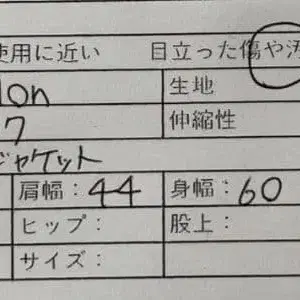 使用に近い 目立った傷や汚
lon 生地
7 伸縮性
ジャケット
肩幅：44 身幅：60
ヒップ： 股上：
サイズ：